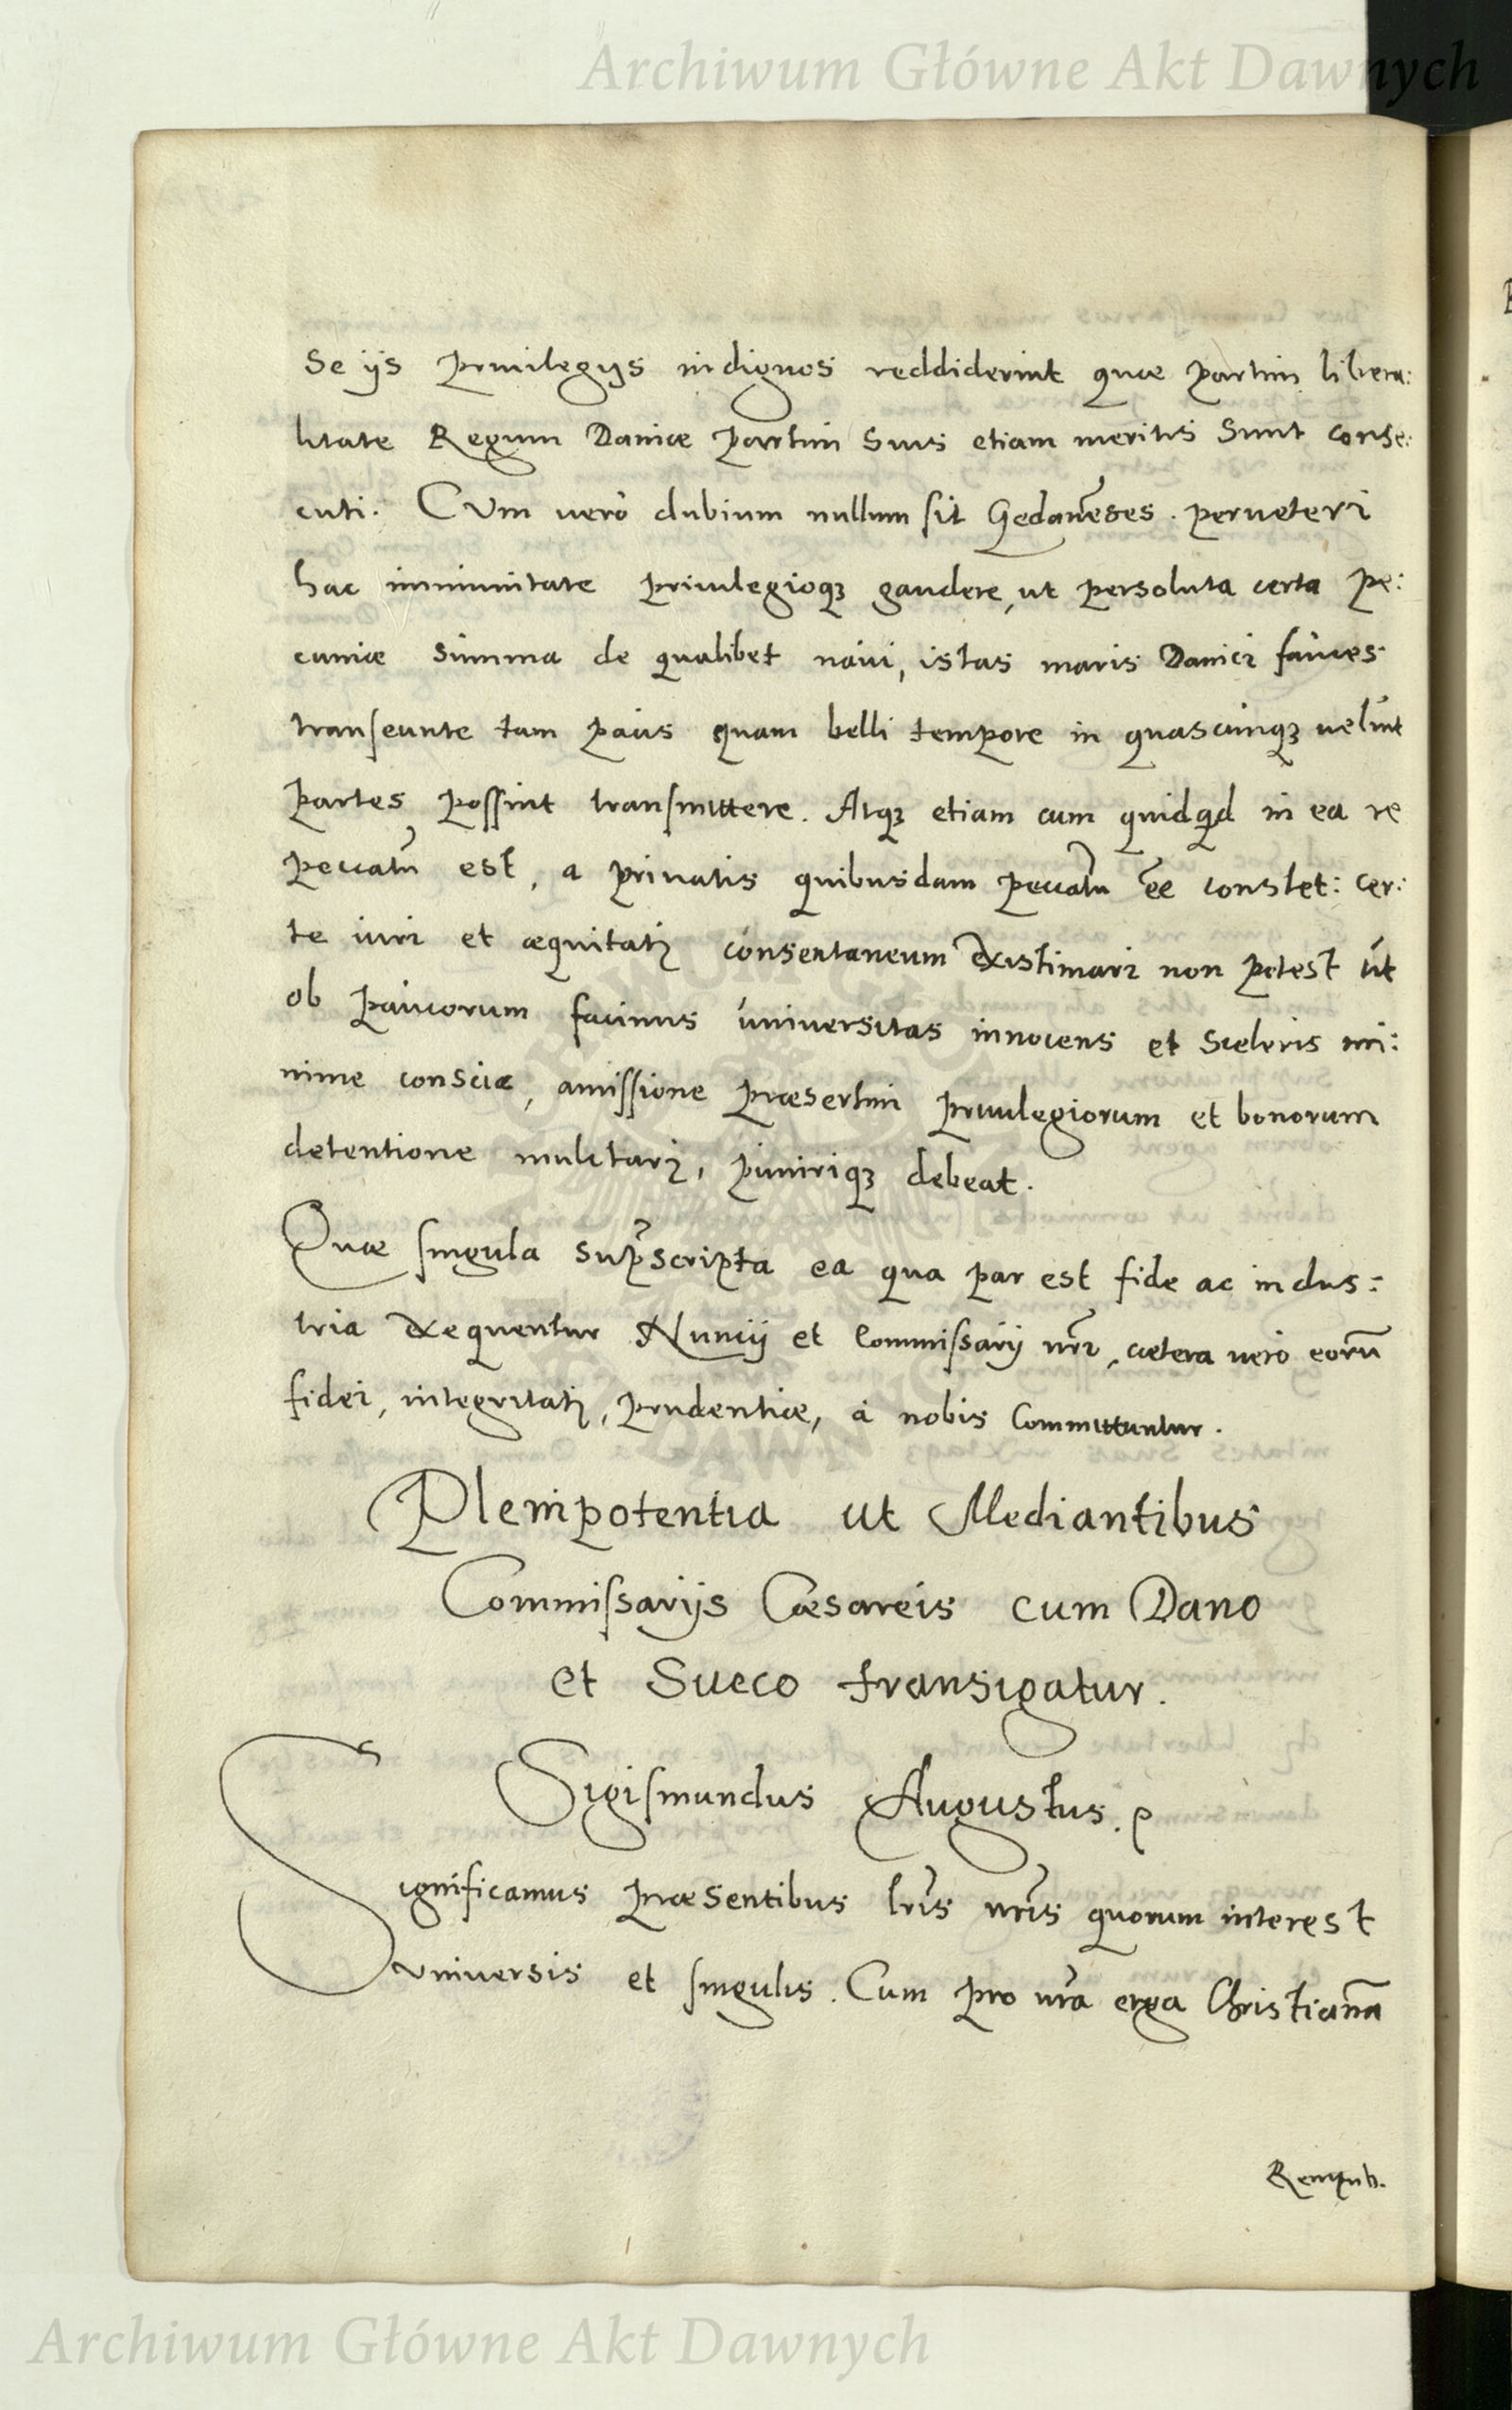 Archiwum Główne Akt Dawnych
Se ijs privilegijs indignos reddiderint quæ partim libera:
litate Regum Daniæ partim Suis etiam meritis Sunt conse:
cuti. Cum verò dubium nullum sit Gedaneñses perveteri
hac immunitate privilegioqꝫ gaudere, ut persoluta certa pe:
cuniæ summa de qualibet navi, istas maris Danici fauces
transeunte tam pacis quam belli tempore in quascunqꝫ velint
partes possint transmittere. Atqꝫ etiam cum quidqd in ea re
peccatũ est, a privatis quibusdam peccatũ eẽ constet: cer:
te iuri et æquitati consentaneum existimari non potest ut
ob paucorum facinus universitas innocens et Sceleris mi:
nime conscia, amissione præsertim privilegiorum et bonorum
detentione mulctari, puniriqꝫ debeat.
Quæ singula supscripta ea qua par est fide ac indus:
tria exequentur Nuncij et Commissarij nri, cætera vero eorũ
fidei, integritati, prudentiæ, à nobis Committuntur.
Plenipotentia ut Mediantibus
Commissarijs Cæsareis cum Dano
et Sueco transigatur.
Sigismundus Augustus. p
Significamus præsentibus lris nris quorum interest
universis et singulis. Cum pro nra erga Christianã
Rempub.
Archiwum Główne Akt Dawnych